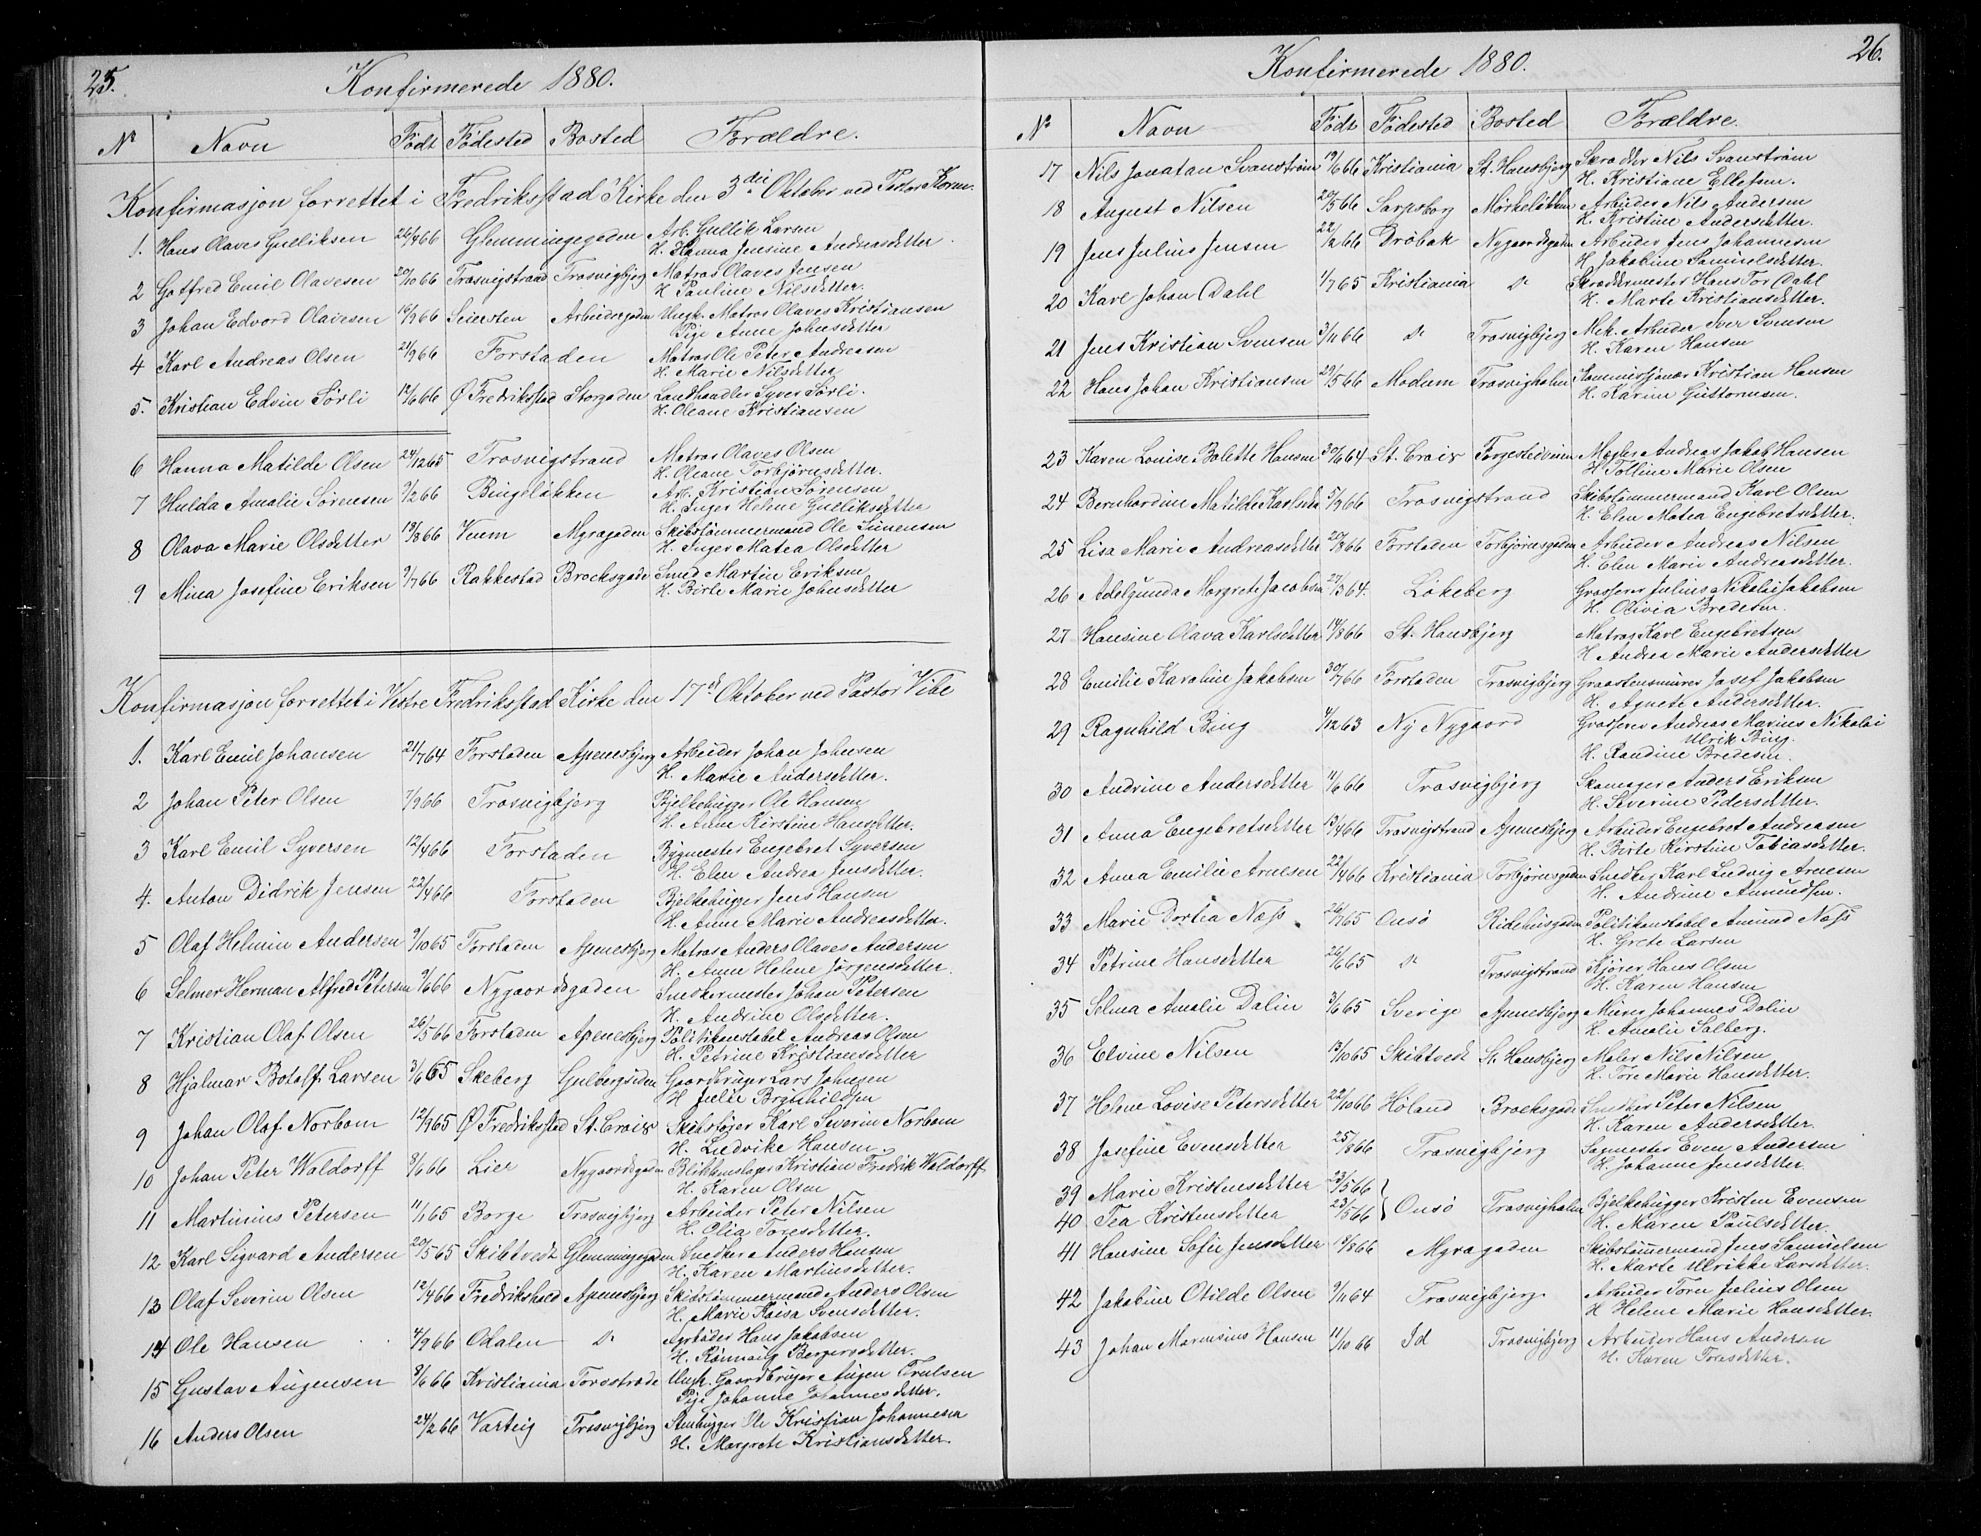 25.
Konfirmerede 1880.
Nr Navn Født Fødested Bosted Forældre.
Konfirmasjon forrettet i Fredriksstad Kirke den 3die Oktober ved Pastor Koren.
1. Hans Olaves Gulliksen 26/4 66 Glemmingegaden Arb. Gullik Larsen
H. Hanna Jensine Andreasdetter.
2 Gotfred Emil Olavesen 20/10 66 Trosvigstrand Trosvigbjerg Matros Olaves Jensen
H. Pauline Nilsdetter.
3 Johan Edvard Olavesen 16/9 66 Seiersten Arbeidergaden Ungk. Matros Olaves Kristiansen
Pige Anne Johnsdetter
4 Karl Andreas Olsen 21/9 66 Forstaden Matros Ole Peter Andreasen
H. Marie Nilsdetter
5. Kristian Edvin Sørli 12/6 66 Ø Fredrikstad Storgaden Landhandler Syver Sørli.
H. Oleane Kristiansen
6 Hanna Matilde Olsen 24/12 65 Trosvigstrand Matros Olaves Olsen
H. Oleane Torbjørnsdetter.
7 Hulda Amalie Sørensen 3/2 66 Bingeløkken Arb. Kristian Sørensen
H. Inger Helene Gulliksdetter
8 Olava Marie Olsdetter 13/8 66 Veum Myragaden Skibstømmermand Ole Simensen
H. Inger Matea Olsdetter
9 Mina Josefine Eriksen 3/7 66 Rakkestad Brocksgade Smed Martin Eriksen
H. Birte Marie Johnsdetter
Konfirmasjon forrettet i Vestre Fredriksstad Kirke den 17d Oktober ved Pastor Vibe
1. Karl Emil Johansen 21/7 64 Forstaden Apenesbjerg Arbeider Johan Johnsen
H. Marie Andersdetter.
2 Johan Peter Olsen 7/9 66 Trosvigbjerg Bjelkehugger Ole Hansen
H. Anne Kirstine Hansdetter.
3 Karl Emil Syversen 12/4 66 Forstaden Bygmester Engebret Syversen
H. Elen Andrea Jensdetter.
4. Anton Didrik Jensen 22/4 66 Forstaden Bjelkehugger Jens Hansen
H. Anne Marie Andreasdetter.
5 Olaf Helmin Andersen 9/10 65 Forstaden Apenesbjerg Matros Anders Olaves Andersen
H. Anne Helene Jørgensdetter.
6 Selmer Herman Alfred Petersen 7/6 66 Nygaardsgaden Snedkermester Johan Petersen
H. Andrine Olsdetter.
7 Kristian Olaf Olsen 26/5 66 Forstaden Apenesbjerg Politikonstabel Andreas Olsen
H. Petrine Kristiansdetter
8 Hjalmar Botolf Larsen 3/6 65 Skeberg Gulbergsiden Gaardbruger Lars Johnsen
H Julie Brynhildsen
9 Johan Olaf Norbom 12/9 65 Ø Fredriksstad St. Croix Skibstøier Karl Severin Norbom
H. Ludvike Hansen
10 Johan Peter Waldorff 8/6 66 Lier Nygaardsgaden Blikkenslager Kristian Fredrik Waldorff
H. Karen Olsen
11 Martinius Petersen 11/1 65 Borge Trosvigbjerg Arbeider Peter Nilsen
H. Olia Toresdetter.
12 Karl Sigvard Andersen 20/5 65 Skibtvedt Glemmingegaden Snedker Anders Hansen
H. Karen Martinsdetter.
13 Olaf Severin Olsen 12/4 66 Fredrikshald Apenesbjerg Skibstømmermand Anders Olsen
H. Marie Kaisa Svensdetter.
14 Ole Hansen 4/9 66 Odalen do Arbeider Hans Jakobsen
H. Rønnaug Bergersdetter.
15 Gustav Augensen 8/6 66 Kristiania Torvstræde Ungk. Gaardbruger Augen Trulsen
Pige Johanne Johannesdetter.
16 Anders Olsen 24/2 66 Varteig Trosvigbjerg Stenhugger Ole Kristian Johannesen
H. Margrete Kristiansdetter.
26.
Konfirmerede 1880.
Nr Navn Født Fødested Bosted Forældre.
17 Nils Jonatan Svanstrøm 19/6 66 Kristiania St. Hansbjerg Skrædder Nils Svanstrøm
H. Kristiane Ellefsen.
18 August Nilsen 20/5 66 Sarpsborg Mørkeløkken Arbeider Nils Andersen
H. Kristine Andersdetter.
19 Jens Julius Jensen 22/2 66 Drøbak Nygaardsgaden Arbeider Jens Johannesen
H. Jakobine Samuelsdetter.
20 Karl Johan Dahl 1/7 65 Kristiania do Skræddermester Hans Tor Dahl
H. Marte Kristiansdetter.
21 Jens Kristian Svensen 3/11 66 do Trosvigbjerg Mek. Arbeider Iver Svensen
H. Karen Hansen
22 Hans Johan Kristiansen 29/5 66 Modum Trosvigholmen Kommissjonær Kristian Hansen
H. Karine Guttormsen.
23 Karen Louise Bolette Hansen 30/6 64 St. Croix Færgestedveien Mægler Andreas Jakob Hansen
H Tolline Marie Olsen
24 Bernhardine Matilde Karlsen 5/9 66 Trosvigstrand Skibstømmermand Karl Olsen
H. Elen Matea Engebretsdetter.
25 Lisa Marie Andreasdetter 20/8 66 Forstaden Torbjørnsgaden Arbeider Andreas Nilsen
H. Elen Marie Andreasdetter.
26 Adelgunda Margrete Jacobsen 27/3 64. Løkeberg Grosserer Julius Nikolai Jakobsen
H. Olivia Bredesen.
27 Hansine Olava Karlsdetter 14/8 66 St. Hansbjerg Matros Karl Engebretsen
H Andrea Marie Andersdetter
28 Emilie Karoline Jakobsen 30/7 66 Forstaden Trosvigbjerg Graastensmurer Josef Jakobsen
H. Agnete Andersdetter.
29 Ragnhild Bing 4/12 63 Ny Nygaard Grosserer Andreas Marius Nikolai
Ulrik Bing.
H. Randine Bredesen.
30 Andrine Andersdetter 11/6 66 Trosvigbjerg Skomager Anders Eriksen
H. Severine Pedersdetter.
31 Anna Engebretsdetter 13/4 66 Trosvigstrand Apenesbjerg Arbeider Engebret Andreasen
H. Birte Kirstine Tobiasdetter.
32 Anna Emilie Arnesen 22/4 66 Kristiania Torbjørnsgaden Snedker Karl Ludvig Arnesen
H. Andrine Amundsen.
33 Marie Dortea Næss. 26/7 65 Onsø Ridehusgaden Politikonstabel Amund Næss
H. Grete Larsen
34 Petrine Hansdetter 26/6 65 do Trosvigstrand Kjører Hans Olsen
H. Karen Hansen
35 Selma Amalie Dalin 3/6 65 Sverige Apenesbjerg Murer Johannes Dalin
H. Amalie Solberg.
36 Elvine Nilsen 13/10 65 Skibtvedt St. Hansbjerg Maler Nils Nilsen
H. Tore Marie Hansdetter.
37 Helene Lovise Petersdetter 22/10 66 Høland Brocksgade Snedker Peter Nilsen
H. Karen Andersdetter.
38 Josefine Evensdetter 25/9 66 Trosvigbjerg Sagmester Even Andersen
H. Johanne Jensdetter.
39 Marie Kristensdetter 23/5 66
40 Tea Kristensdetter 23/5 66 } Onsø Trosvigholmen Bjelkehugger Kristen Evensen
H. Maren Paulsdetter.
41 Hansine Sofie Jensdetter 19/8 66 Myragaden Skibstømmermand Jens Samuelsen
H. Marte Ulrikke Larsdetter.
42 Jakobine Otilde Olsen 9/11 64 Trosvigbjerg Arbeider Torn Julius Olsen
H Helene Marie Hansdetter.
43 Johan Marensius Hansen 11/10 66 Id Trosvigbjerg Arbeider Hans Andersen
H. Karen Toresdetter.